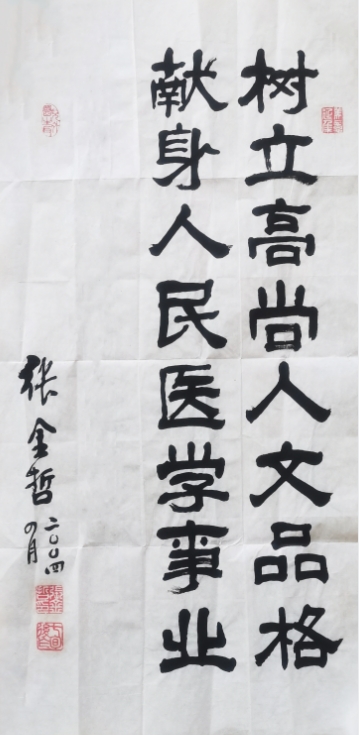 树立高尚人文品格
献身人民医学事业
张金哲
二〇〇四
四月